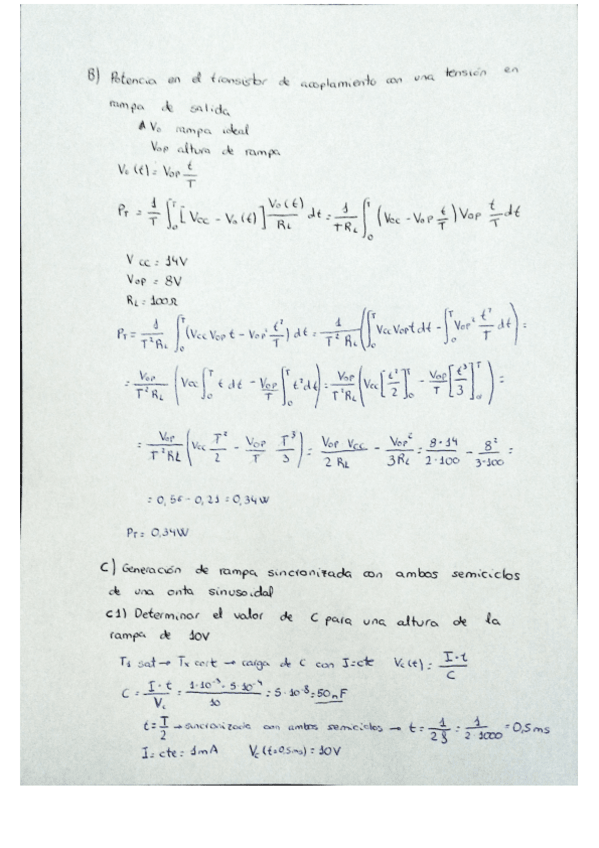 B) Potencia en el transistor de acoplamiento con una tensión en
rampa de salida
Vo rampa ideal
Vop altura de rampa
Vo(t) = Vop t/T
P_T = 1/T ∫₀ᵀ [Vcc - Vo(t)] Vo(t)/R_L dt = 1/(T R_L) ∫₀ᵀ (Vcc - Vop t/T) Vop t/T dt
Vcc = 14V
Vop = 8V
R_L = 100Ω
P_T = 1/(T² R_L) ∫₀ᵀ (Vcc Vop t - Vop² t²/T) dt = 1/(T² R_L) (∫₀ᵀ Vcc Vop t dt - ∫₀ᵀ Vop² t²/T dt) =
= Vop/(T² R_L) (Vcc ∫₀ᵀ t dt - Vop/T ∫₀ᵀ t² dt) = Vop/(T² R_L) (Vcc [t²/2]₀ᵀ - Vop/T [t³/3]₀ᵀ) =
= Vop/(T² R_L) (Vcc T²/2 - Vop/T T³/3) = Vop Vcc/(2 R_L) - Vop²/(3 R_L) = 8·14/(2·100) - 8²/(3·100) =
= 0,56 - 0,21 = 0,34W
P_T = 0,34W
C) Generación de rampa sincronizada con ambos semiciclos
de una onta sinusoidal
C1) Determinar el valor de C para una altura de la
rampa de 10V
T₁ sat → Tx cort → carga de C con I=cte Vc(t) = I·t/C
C = I·t/Vc = 1·10⁻³·5·10⁻⁴/10 = 5·10⁻⁸ = 50nF
t = T/2 → sincronizada con ambos semiciclos → t = 1/(2f) = 1/(2·1000) = 0,5ms
I = cte = 1mA Vc(t=0,5ms) = 10V